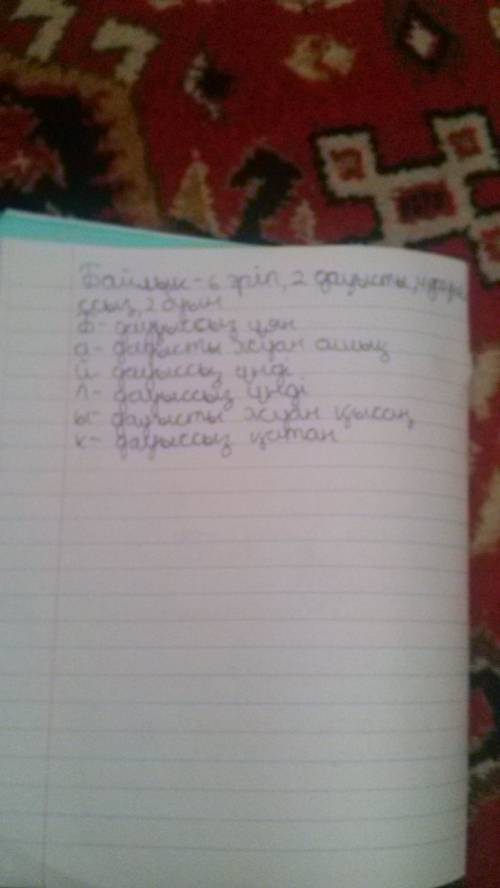 Байлық - 6 әріп, 2 дауысты, 4 дауы
ссыз, 2 буын
б - дауыссыз ұян
а - дауысты жуан ашық
й - дауыссыз үнді
л - дауыссыз үнді
ы - дауысты жуан қысаң
қ - дауыссыз қатаң